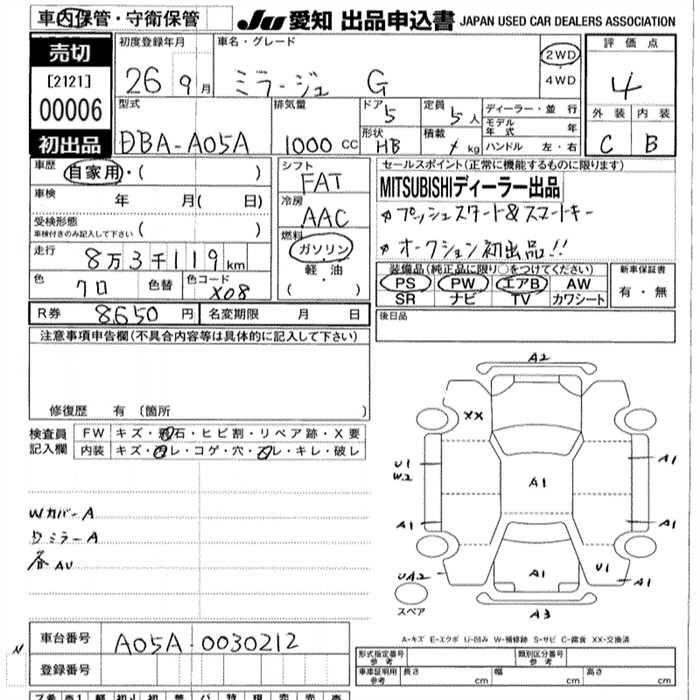 車内保管・守衛保管
JU 愛知 出品申込書 JAPAN USED CAR DEALERS ASSOCIATION
売切
[2121]
00006
初出品
初度登録年月
26 9月
車名・グレード
ミラージュ G
2WD
4WD
評価点
4
外装 内装
C B
型式
DBA-A05A
排気量
1000 CC
ドア 5
形状 HB
定員 5人
積載 kg
ディーラー・並行
モデル年式 年
ハンドル 左・右
車歴 自家用・( )
車検 年 月( 日)
受検形態
車検付きのみ記入して下さい ( )
走行 8万3千119km
色 クロ 色替 色コード X08
シフト
FAT
冷房
AAC
燃料
ガソリン
軽油
( ・ )
セールスポイント(正常に機能するものに限ります)
MITSUBISHIディーラー出品
プッシュスタート&スマートキー
オークション初出品!!
装備品(純正品に限り○をつけてください)
PS PW エアB AW
SR ナビ TV カワシート
新車保証書
有・無
R券 8650円 名変期限 月 日
後日品
注意事項申告欄(不具合内容等は具体的に記入して下さい)
修復歴 有(箇所 )
検査員
記入欄
FW キズ・飛石・ヒビ割・リペア跡・X要
内装 キズ・汚レ・コゲ・穴・スレ・キレ・破レ
WカバーA
ミラーA
各AU
A2
XX
U1
W2
A1
A1
A1
A1
UA2
A1
U1
A1
A3
スペア
A-キズ E-エクボ U-凹み W-補修跡 S-サビ C-腐食 XX-交換済
N
車台番号 A05A-0030212
登録番号
形式指定番号
参考
類別区分番号
参考
車庫証明用
参考
長さ cm 幅 cm 高さ cm